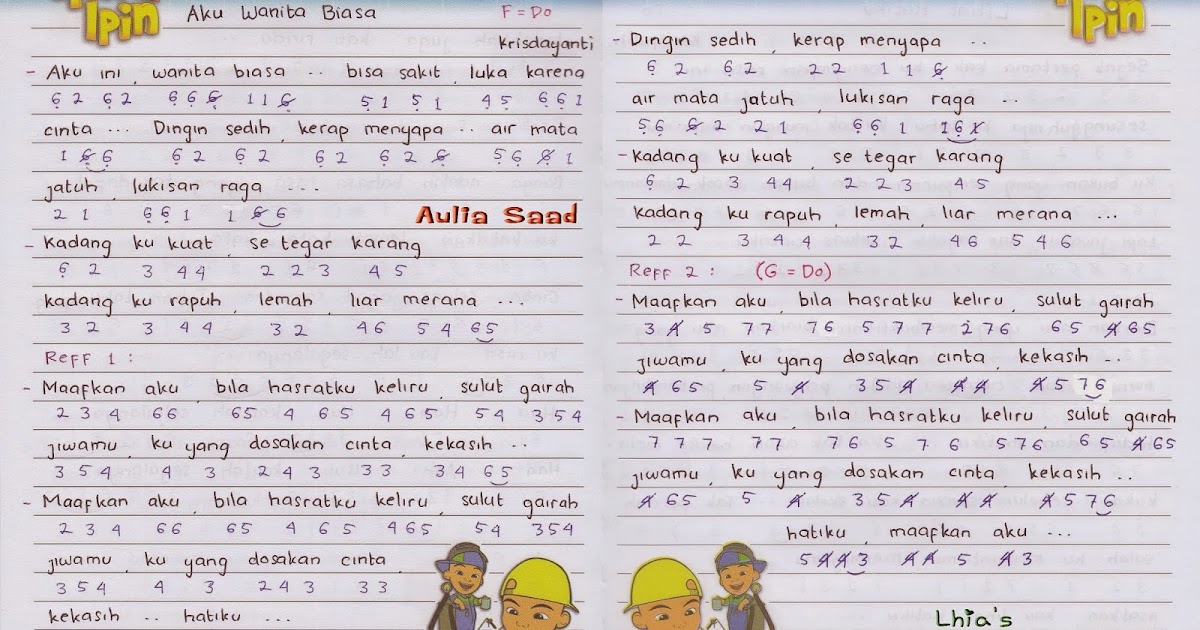 Ipin
Aku Wanita Biasa F = Do
Krisdayanti
- Aku ini , wanita biasa .. bisa sakit , luka karena
6 2 6 2 6 6 6 1 1 6 5 1 5 1 4 5 6 6 1
cinta ... Dingin sedih , kerap menyapa .. air mata
1 6 6 6 2 6 2 6 2 6 2 6 5 6 6 1
jatuh , lukisan raga ...
2 1 6 6 1 1 6 6
Aulia Saad
- Kadang ku kuat , se tegar karang
6 2 3 4 4 2 2 3 4 5
kadang ku rapuh , lemah , liar merana ...
3 2 3 4 4 3 2 4 6 5 4 6 5
Reff 1 :
- Maafkan aku , bila hasratku keliru , sulut gairah
2 3 4 6 6 6 5 4 6 5 4 6 5 5 4 3 5 4
jiwamu , ku yang dosakan cinta , kekasih ...
3 5 4 4 3 2 4 3 3 3 3 4 6 5
- Maafkan aku , bila hasratku keliru , sulut gairah
2 3 4 6 6 6 5 4 6 5 4 6 5 5 4 3 5 4
jiwamu , ku yang dosakan cinta ,
3 5 4 4 3 2 4 3 3 3
kekasih .. hatiku ...
Ipin
- Dingin sedih , kerap menyapa ..
6 2 6 2 2 2 1 1 6
air mata jatuh , lukisan raga ...
5 6 6 2 2 1 6 6 1 1 6 1
- Kadang ku kuat , se tegar karang
6 2 3 4 4 2 2 3 4 5
kadang ku rapuh , lemah , liar merana ...
2 2 3 4 4 3 2 4 6 5 4 6
Reff 2 : (G = Do)
- Maafkan aku , bila hasratku keliru , sulut gairah
3 4 5 7 7 7 6 5 7 7 2 7 6 6 5 4 6 5
jiwamu , ku yang dosakan cinta , kekasih ..
4 6 5 5 4 3 5 4 4 4 4 5 7 6
- Maafkan aku , bila hasratku keliru , sulut gairah
7 7 7 7 7 7 6 5 7 6 5 7 6 6 5 4 6 5
jiwamu , ku yang dosakan cinta , kekasih ..
4 6 5 5 4 3 5 4 4 4 4 5 7 6
hatiku , maafkan aku ...
5 4 4 3 4 4 5 4 3
Lhia's